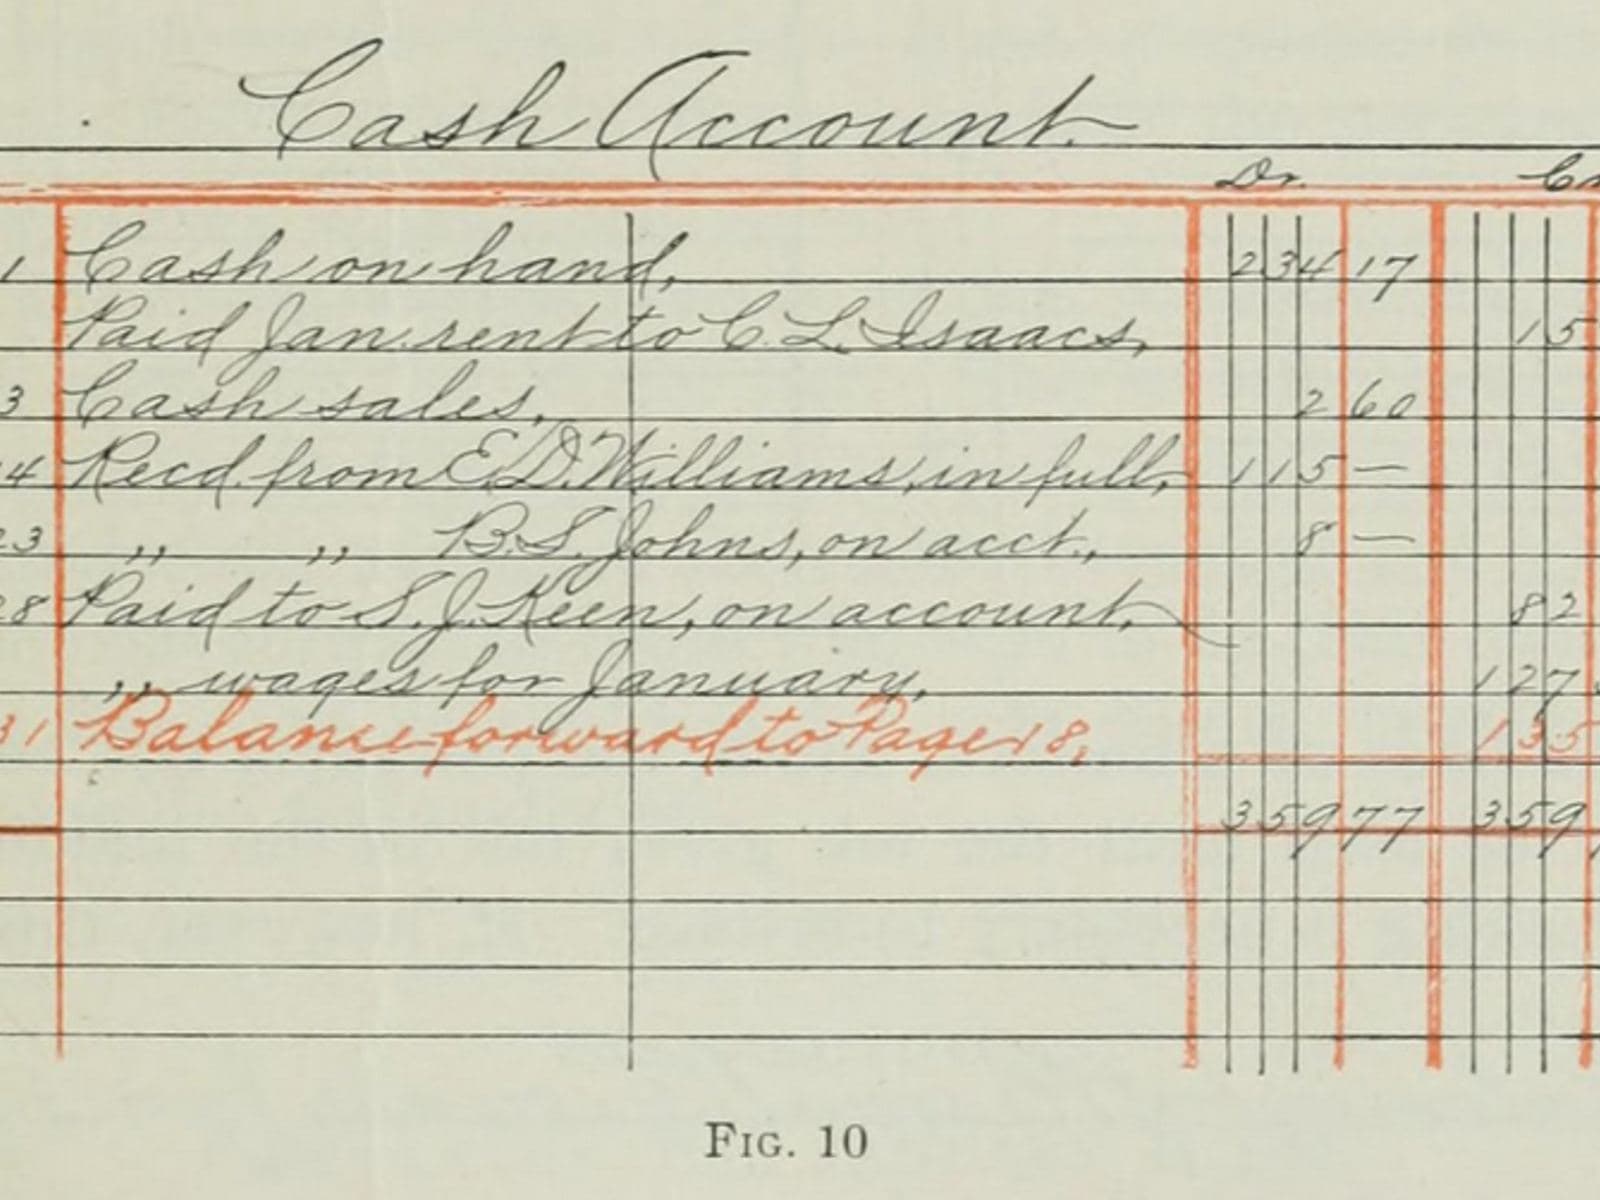 Cash Account.
Dr. Cr
1 Cash on hand, 234 17
Paid Jan. rent to C. L. Isaacs, 15
3 Cash sales, 2 60
4 Recd. from E. D. Williams, in full, 115 —
23 ,, ,, B. S. Johns, on acct., 8 —
28 Paid to S. J. Keen, on account, 82
,, wages for January, 127
31 Balance forward to Page 18, 135
359 77 359
FIG. 10